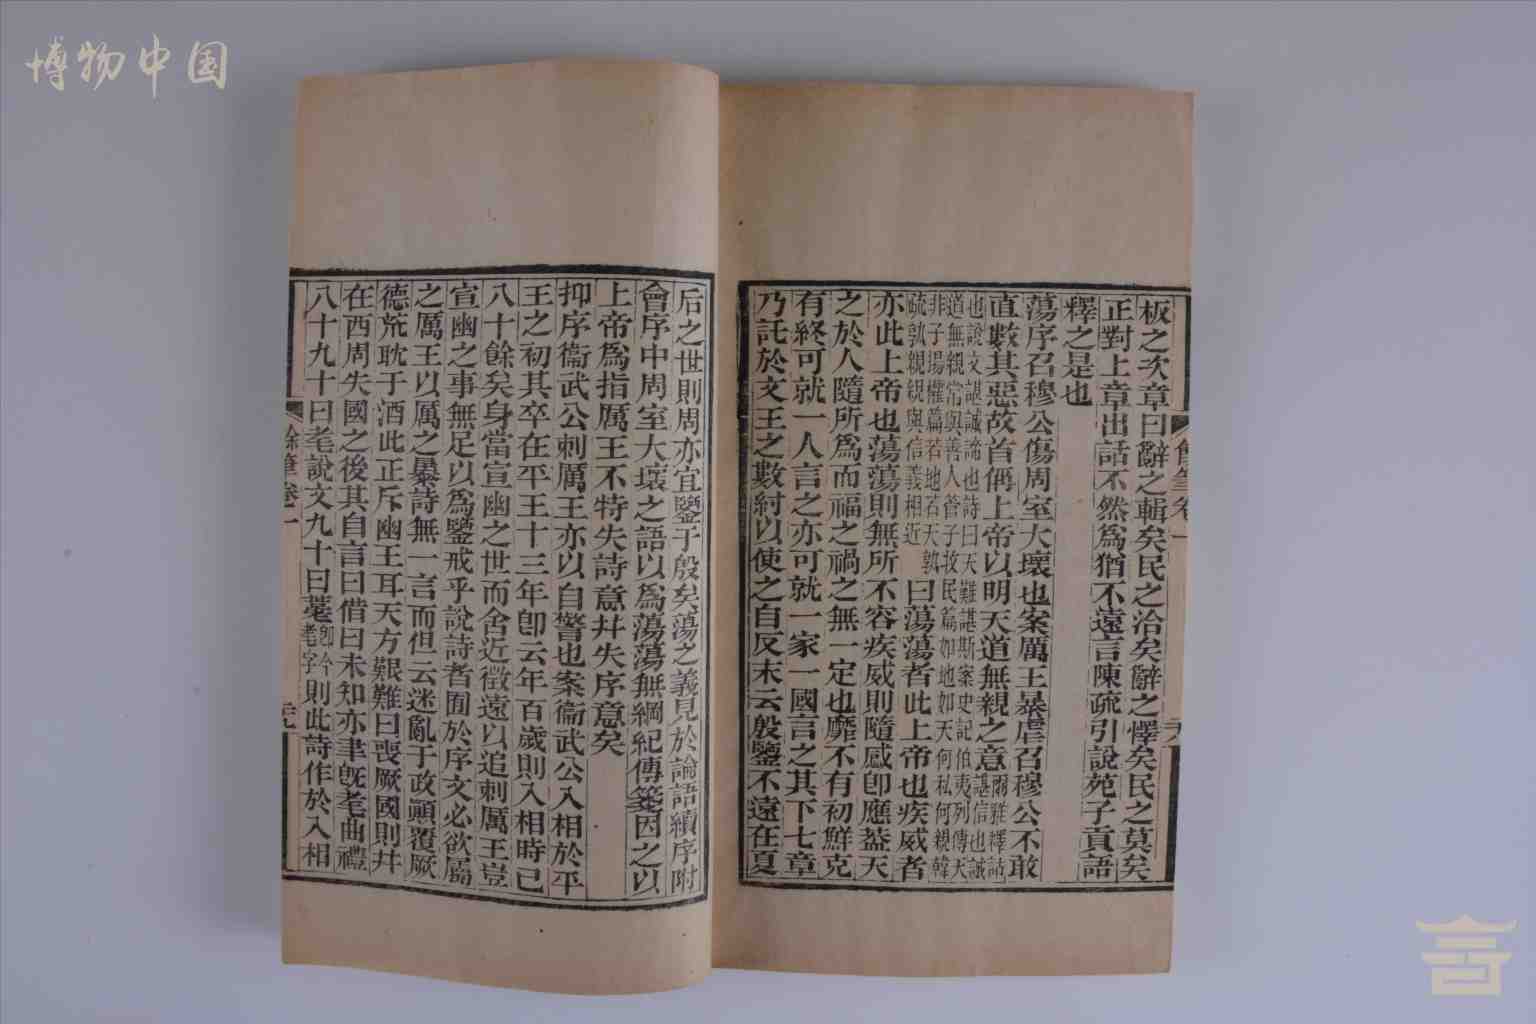 博物中国
板之次章曰辭之輯矣民之洽矣辭之懌矣民之莫矣
正對上章出話不然為猶不遠言陳疏引說苑子貢語
釋之是也
蕩序召穆公傷周室大壞也案厲王暴虐召穆公不敢
直數其惡故首偁上帝以明天道無親之意爾雅釋詁
諶信也誠
也說文諶誠諦也詩曰天難諶斯案史記伯夷列傳天
道無親常與善人管子牧民篇如地如天何私何親韓
非子揚權篇若地若天孰
疏孰親親與信義相近
曰蕩蕩者此上帝也疾威者
亦此上帝也蕩蕩則無所不容疾威則隨感卽應葢天
之於人隨所為而福之禍之無一定也靡不有初鮮克
有終可就一人言之亦可就一家一國言之其下七章
乃託於文王之數紂以使之自反末云殷鑒不遠在夏
餘筆卷一
后之世則周亦宜鑒于殷矣蕩之義見於論語續序附
會序中周室大壞之語以為蕩蕩無綱紀傳箋因之以
上帝為指厲王不特失詩意并失序意矣
抑序衞武公刺厲王亦以自警也案衞武公入相於平
王之初其卒在平王十三年卽云年百歲則入相時已
八十餘矣身當宣幽之世而舍近徵遠以追刺厲王豈
宣幽之事無足以為鑒戒乎說詩者囿於序文必欲屬
之厲王以厲之暴詩無一言而但云迷亂于政顚覆厥
德荒耽于酒此正斥幽王耳天方艱難曰喪厥國則并
在西周失國之後其自言曰借曰未知亦聿旣耄曲禮
八十九十曰耄說文九十曰薹卽今
耄字則此詩作於入相
餘筆卷一